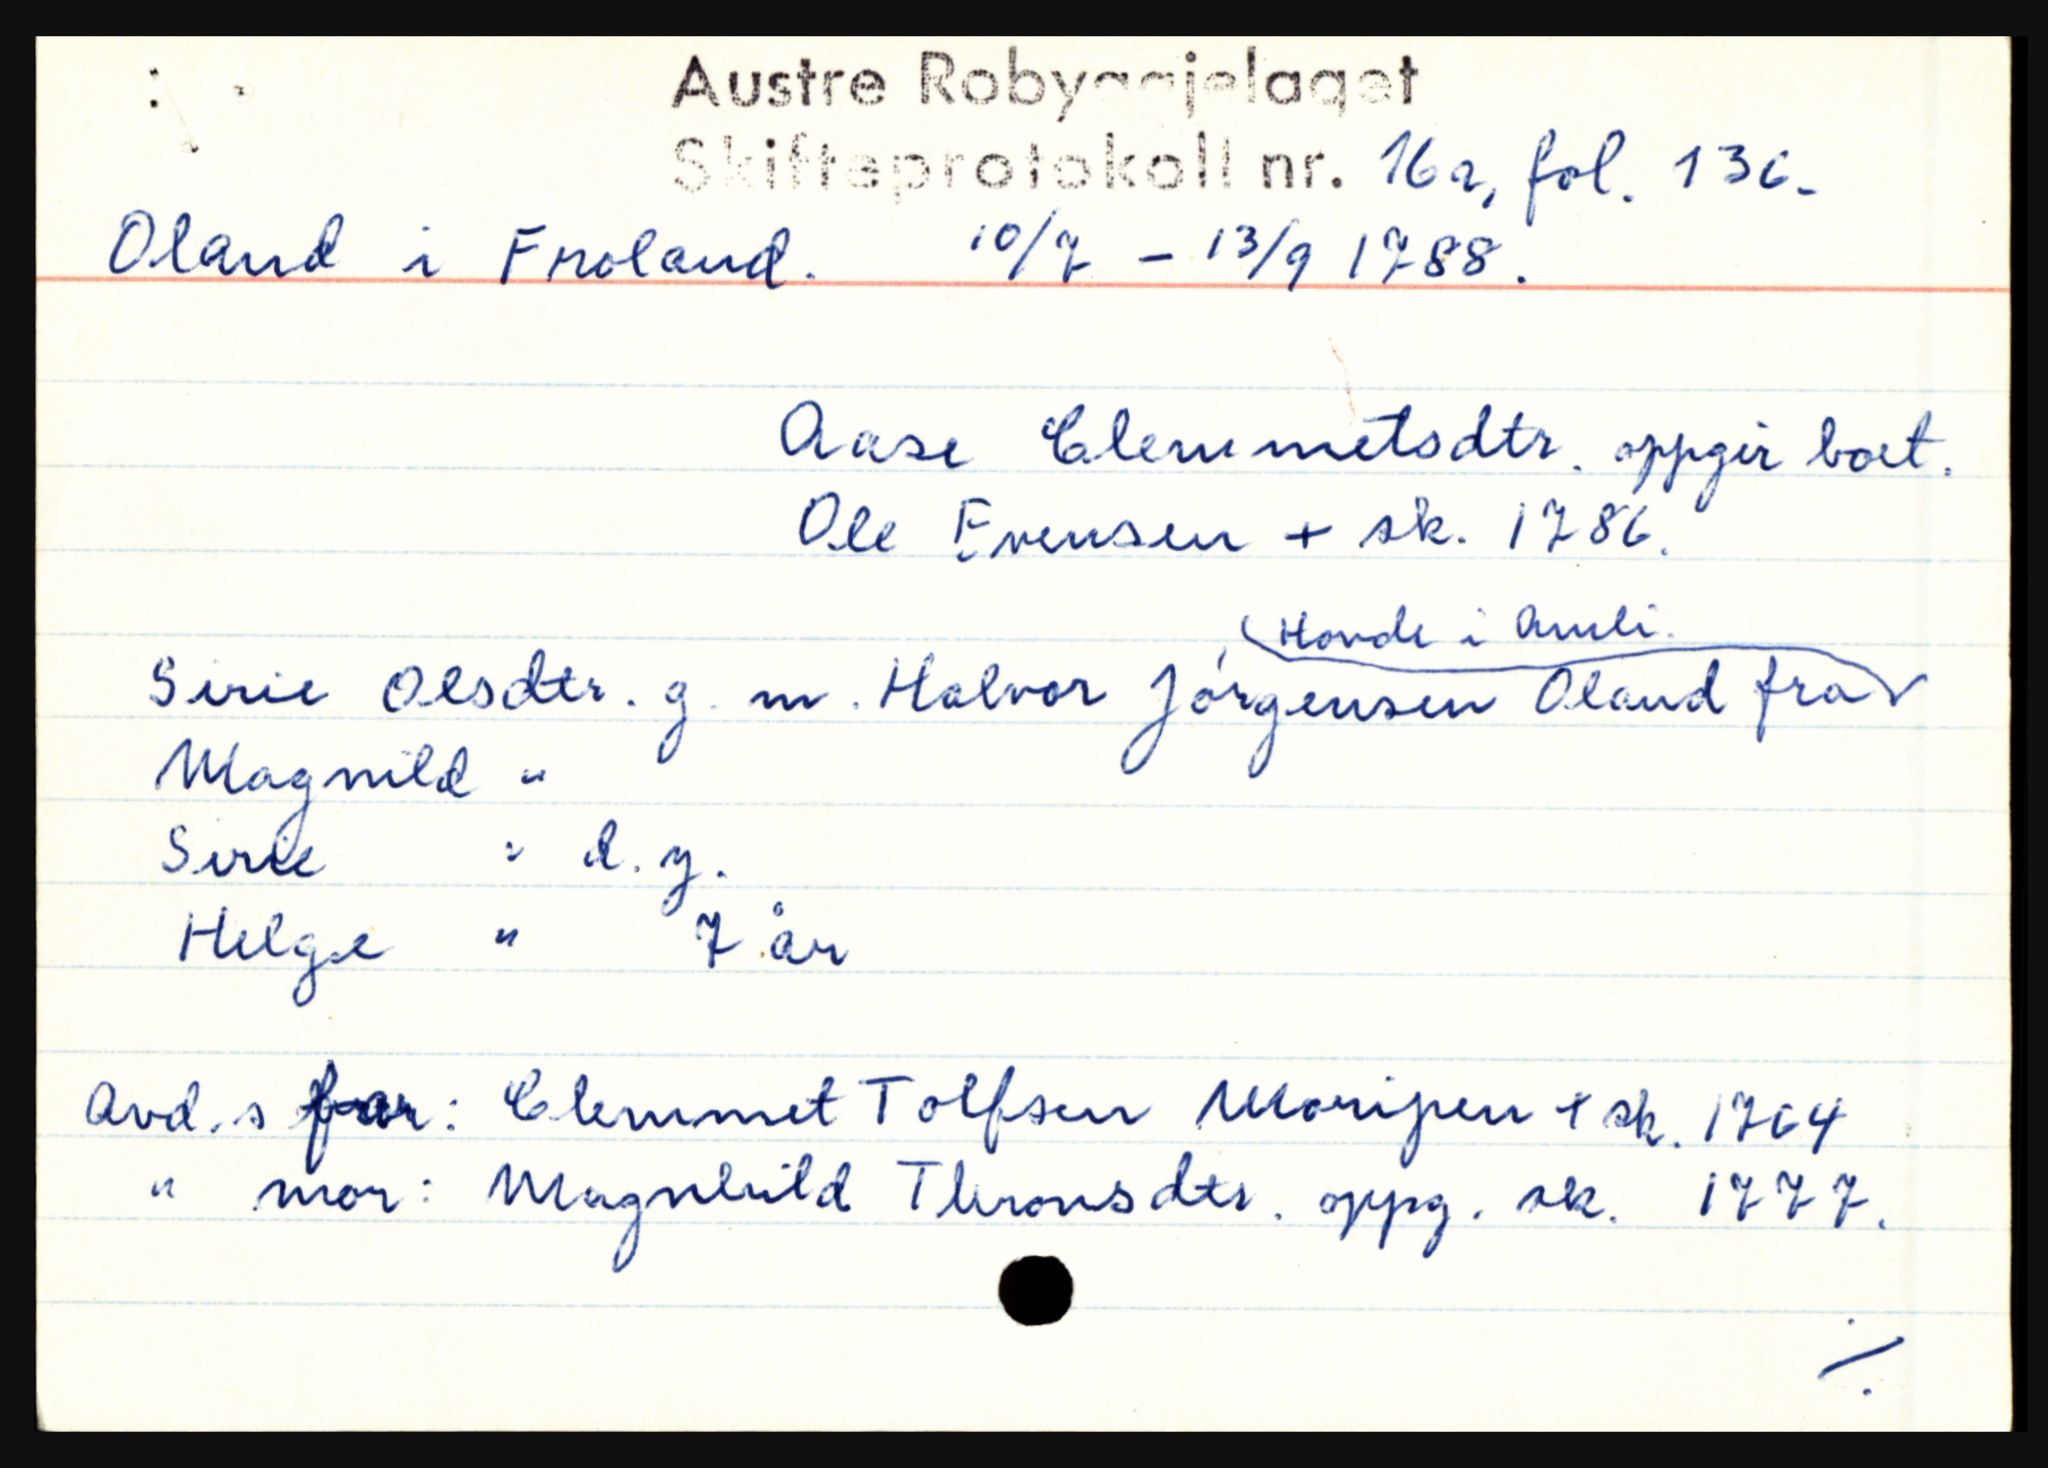 Austre Robyggjelaget
Skifteprotokoll nr. 16a, fol. 136.
Oland i Froland. 10/7 - 13/9 1788.
Aase Clemmetsdtr. oppgir boet.
Ole Evensen + sk. 1786.
Hovde i Amli.
Sirie Olsdtr. g. m. Halvor Jørgensen Oland fra
Magnild "
Sirie " d. y.
Helge " 7 år
Avd.s far: Clemmet Tolfsen Moripen + sk. 1764
" mor: Magnhild Thronsdtr. oppg. sk. 1777.
./.